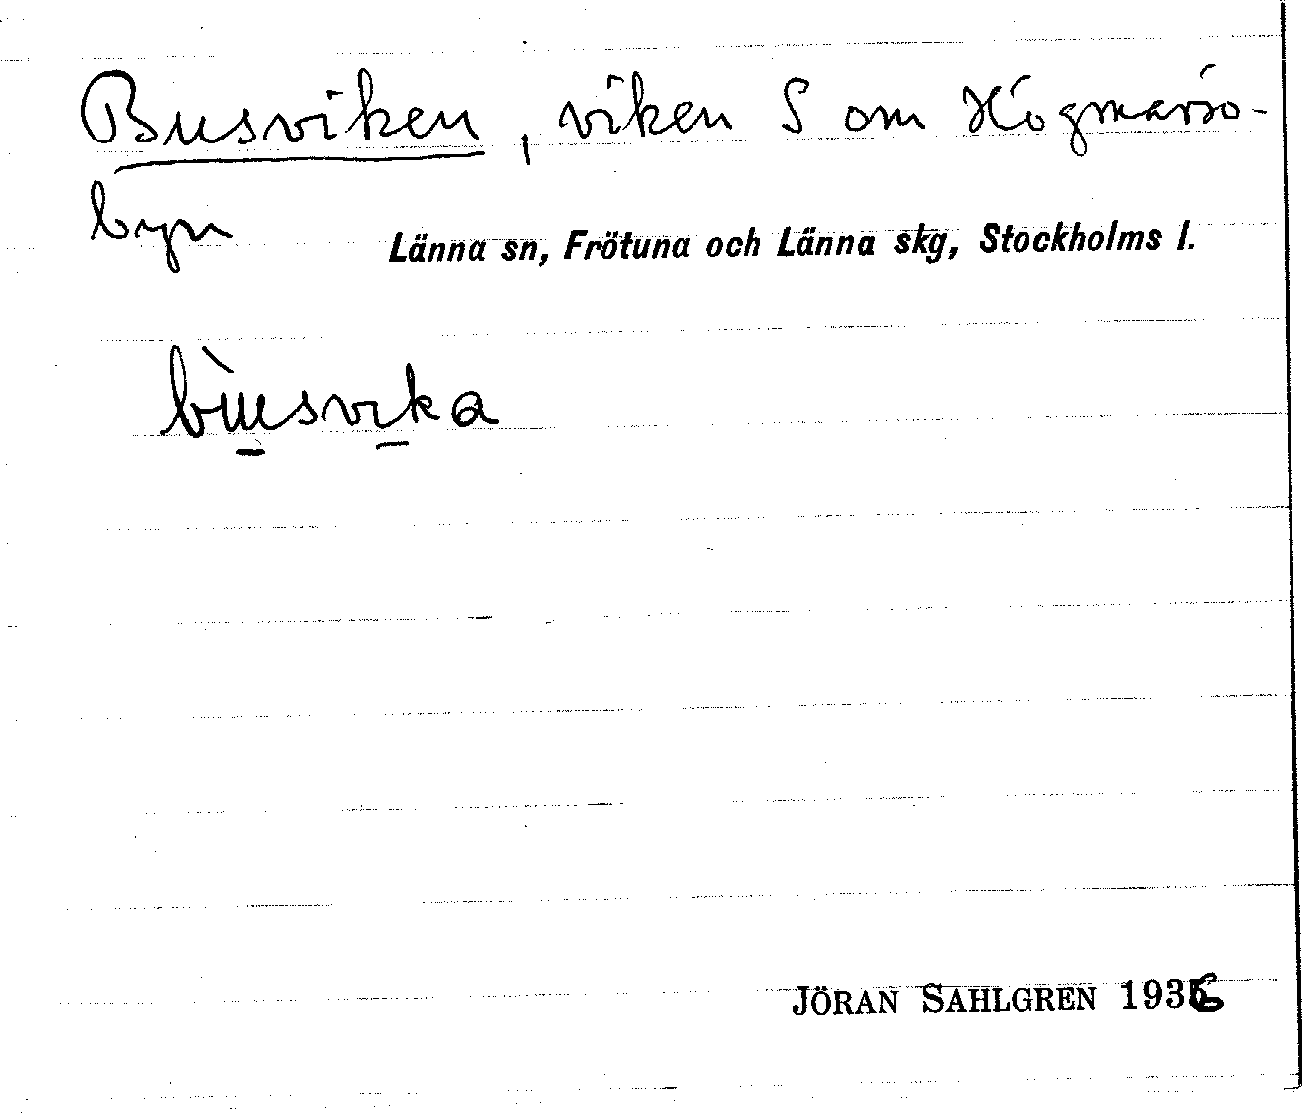 Busviken, viken S om Högmarsö-
byn
Länna sn, Frötuna och Länna skg, Stockholms l.
bùsvika
JÖRAN SAHLGREN 1936